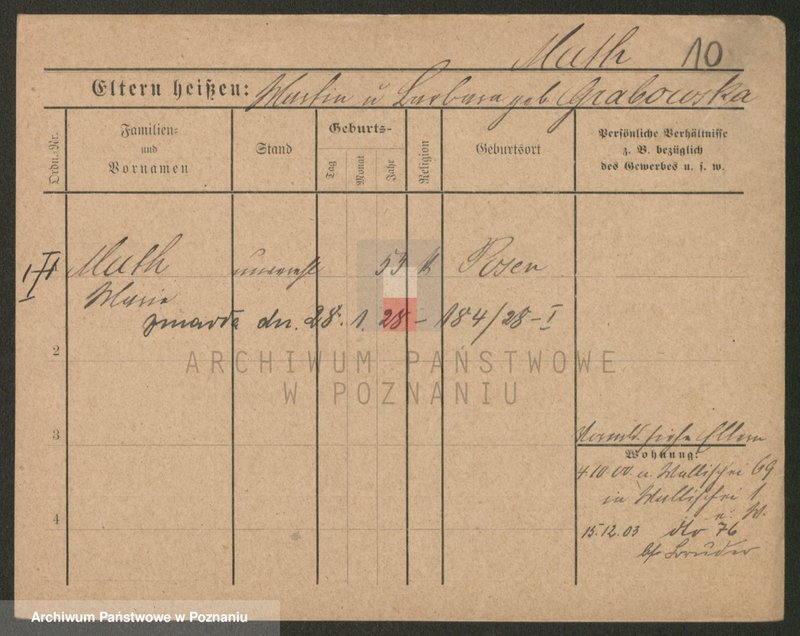 Muth 10
Eltern heißen: Martin u Barbara geb. Grabowska
Ordn.-Nr.
Familien-
und
Vornamen
Stand
Geburts-
Tag
Monat
Jahr
Religion
Geburtsort
Persönliche Verhältnisse
z. B. bezüglich
des Gewerbes u. s. w.
1
Muth 53 k Posen
Marie
zmarła dn. 28. 1. 28 - 184/28-I
2
ARCHIWUM PAŃSTWOWE
W POZNANIU
3
siehe Eltern
Wohnung:
4.10.00. a. Wallischei 69
in Wallischei 1
4
15.12.03 dto 76
Bruder
Archiwum Państwowe w Poznaniu